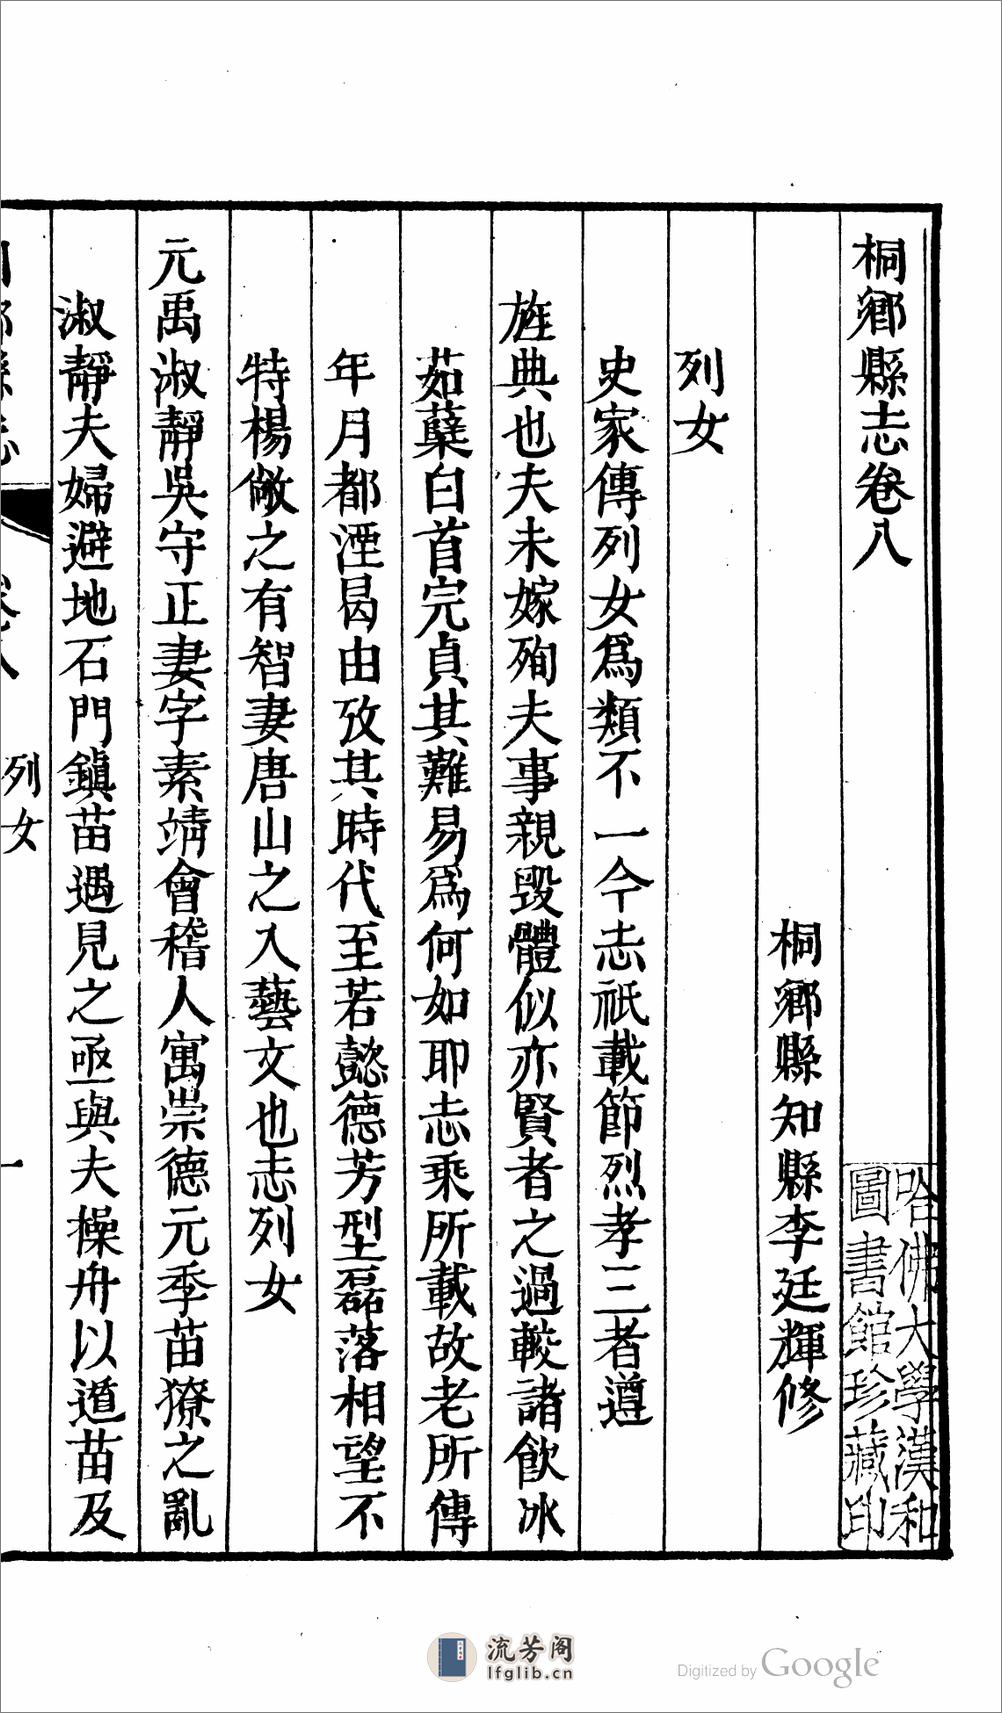 桐鄉縣志卷八
桐鄉縣知縣李廷輝修
列女
史家傳列女爲類不一今志祇載節烈孝三者遵
旌典也夫未嫁殉夫事親毀體似亦賢者之過較諸飲冰
茹蘗白首完貞其難易爲何如耶志乘所載故老所傳
年月都湮曷由攷其時代至若懿德芳型磊落相望不
特楊敞之有智妻唐山之入藝文也志列女
元禹淑靜吳守正妻字素靖會稽人寓崇德元季苗獠之亂
淑靜夫婦避地石門鎮苗遇見之亟與夫操舟以遁苗及
卷八
列女
一
哈佛大學漢和
圖書館珍藏印
流芳阁
lfglib.cn
Digitized by Google